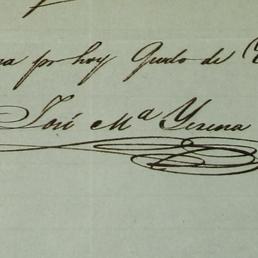 por hoy Quedo de
José Mª Yerena